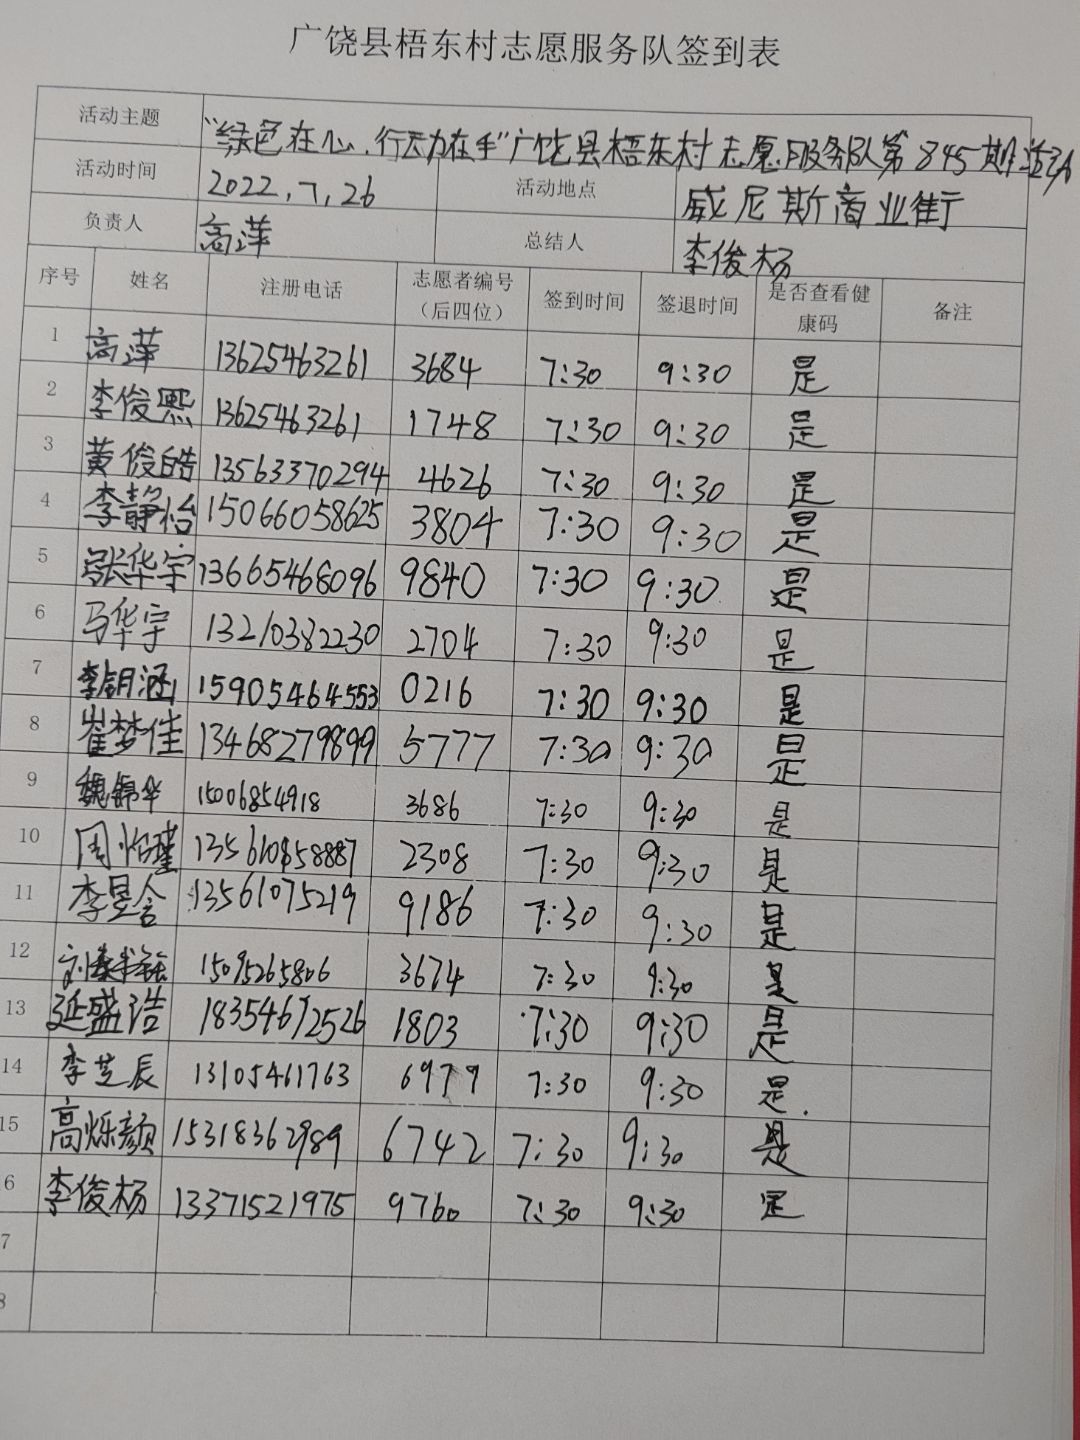 广饶县梧东村志愿服务队签到表
活动主题 “绿色在心、行动在手”广饶县梧东村志愿服务队第845期活动
活动时间 2022,7,26 活动地点 威尼斯商业街
负责人 高萍 总结人 李俊杨
序号 姓名 注册电话 志愿者编号（后四位） 签到时间 签退时间 是否查看健康码 备注
1 高萍 13625463261 3684 7:30 9:30 是
2 李俊熙 13625463261 1748 7:30 9:30 是
3 黄俊皓 13563370294 4626 7:30 9:30 是
4 李静怡 15066058625 3804 7:30 9:30 是
5 张华宇 13665468096 9840 7:30 9:30 是
6 马华宇 13210382230 2704 7:30 9:30 是
7 李钥涵 15905464553 0216 7:30 9:30 是
8 崔梦佳 13468279899 5777 7:30 9:30 是
9 魏锦华 15006854918 3686 7:30 9:30 是
10 周怡瑾 2308 7:30 9:30 是
11 李昱含 13561075219 9186 7:30 9:30 是
12 15095265806 3674 7:30 9:30 是
13 延盛浩 18354672526 1803 7:30 9:30 是
14 李芝辰 13105461763 6979 7:30 9:30 是.
15 高烁颜 15318362989 6742 7:30 9:30 是
6 李俊杨 13371521975 9760 7:30 9:30 是
7
8